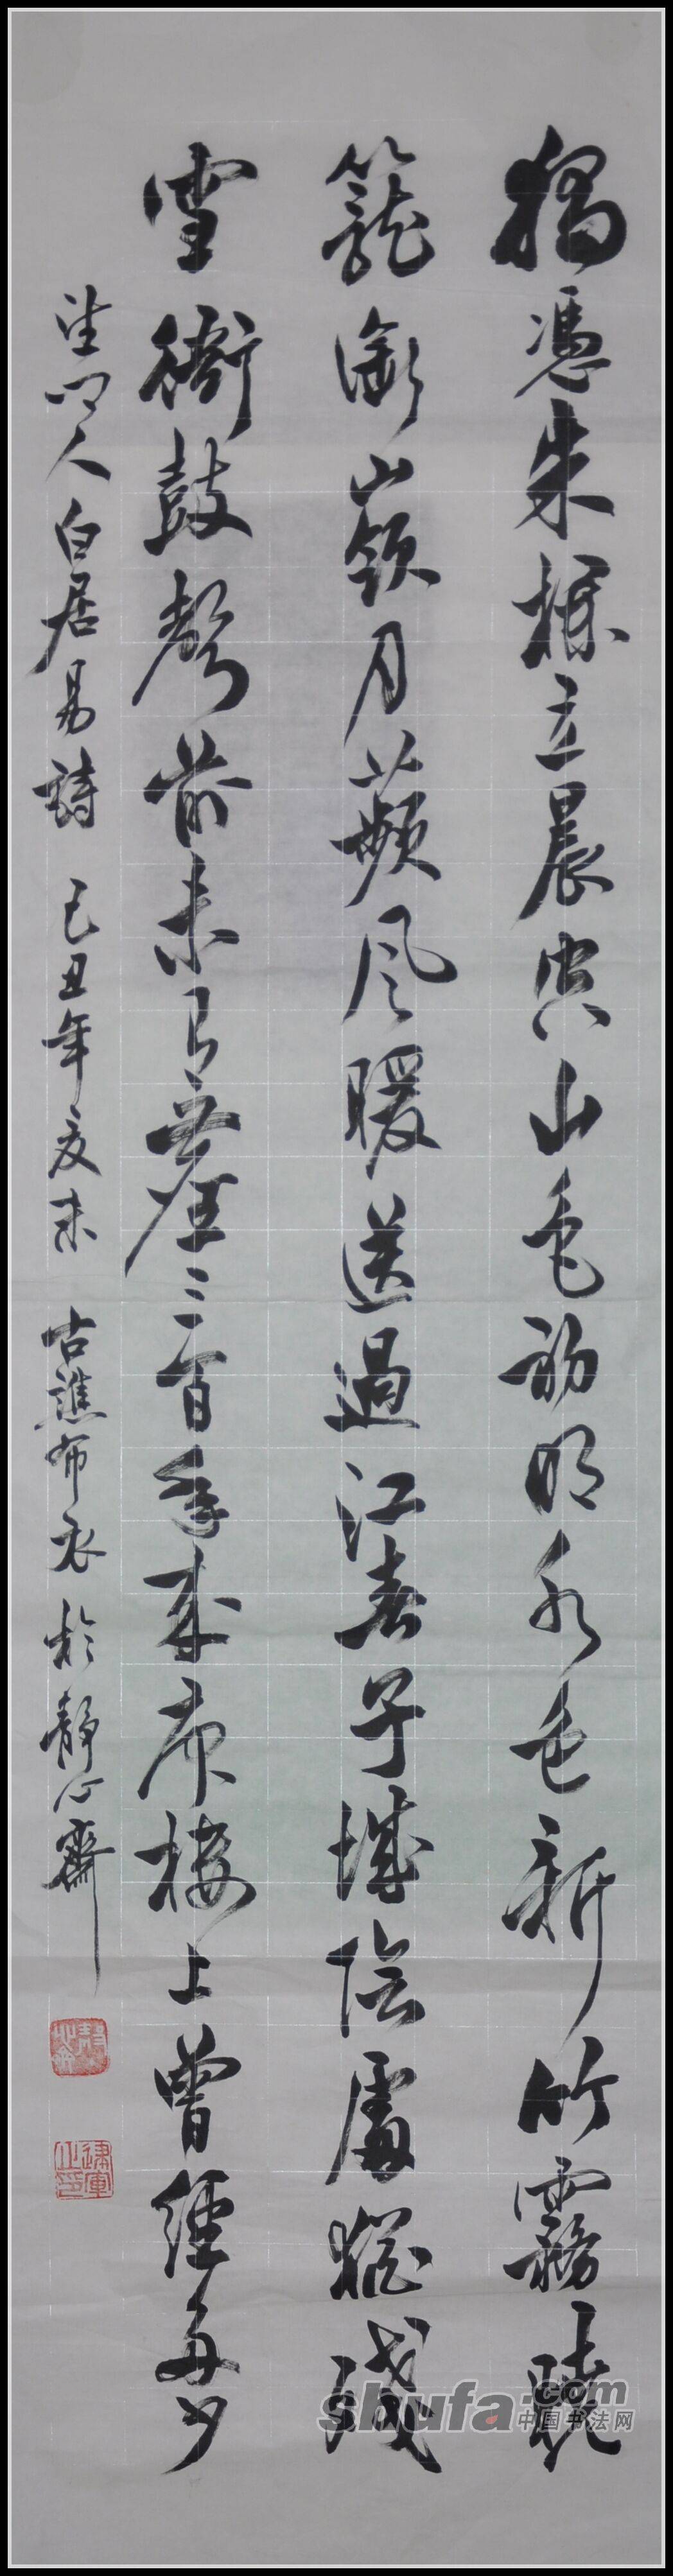 獨憑朱檻立晨山色初明水色新竹霧曉
籠銜嶺月蘋风暖送過江春子城陰處猶殘
雪衙鼓聲前未有塵三百年來庾樓上曾經多少
望鄉人 白居易詩 己丑年夏末 古譙布衣 於靜心齋
建軍之印
shufa.com
中国书法网